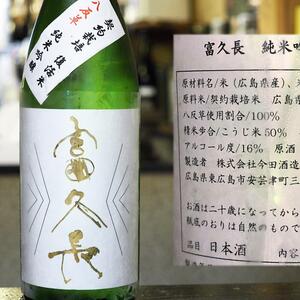 契約栽培復活米
八反草 純米吟醸
富久長
富久長 純米吟
原材料名/米（広島県産）、米
原料米/契約栽培米 広島
八反草使用割合/100%
精米歩合/こうじ米50%
アルコール度/16% 原酒
製造者 株式会社今田酒造
広島県東広島市安芸津町三
お酒は二十歳になってから
瓶底のおりは自然のもので
品目 日本酒 内容